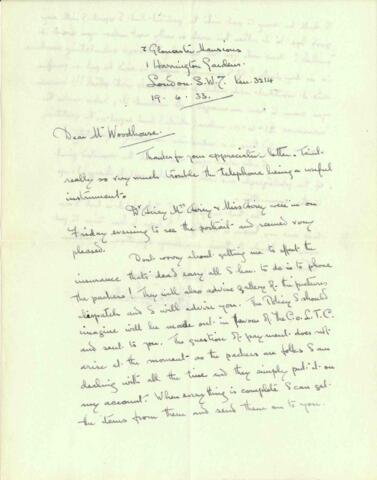 2 Gloucester Mansions
1 Harrington Gardens.
London. S.W.7. Ken. 3214
19. 6. 33.
Dear Mr Woodhouse.
Thanks for your appreciative letter. Taint
really so very much trouble the telephone being a useful
instrument.
Dr Mrs & Miss were in on
Friday evening to see the portrait and seemed very
pleased.
Dont worry about getting me to effect the
insurance thats dead easy all I have to do is to phone
the packers! They will also advise gallery of the pictures
despatch and I will advise you. The Policy I should
imagine will be made out in favour of the Co. L.T.C.
and sent to you. The question of payment does not
arise at the moment as the packers are folks I am
dealing with all the time and they simply put it on
my account. When everything is complete I can get
the items from them and send them on to you.